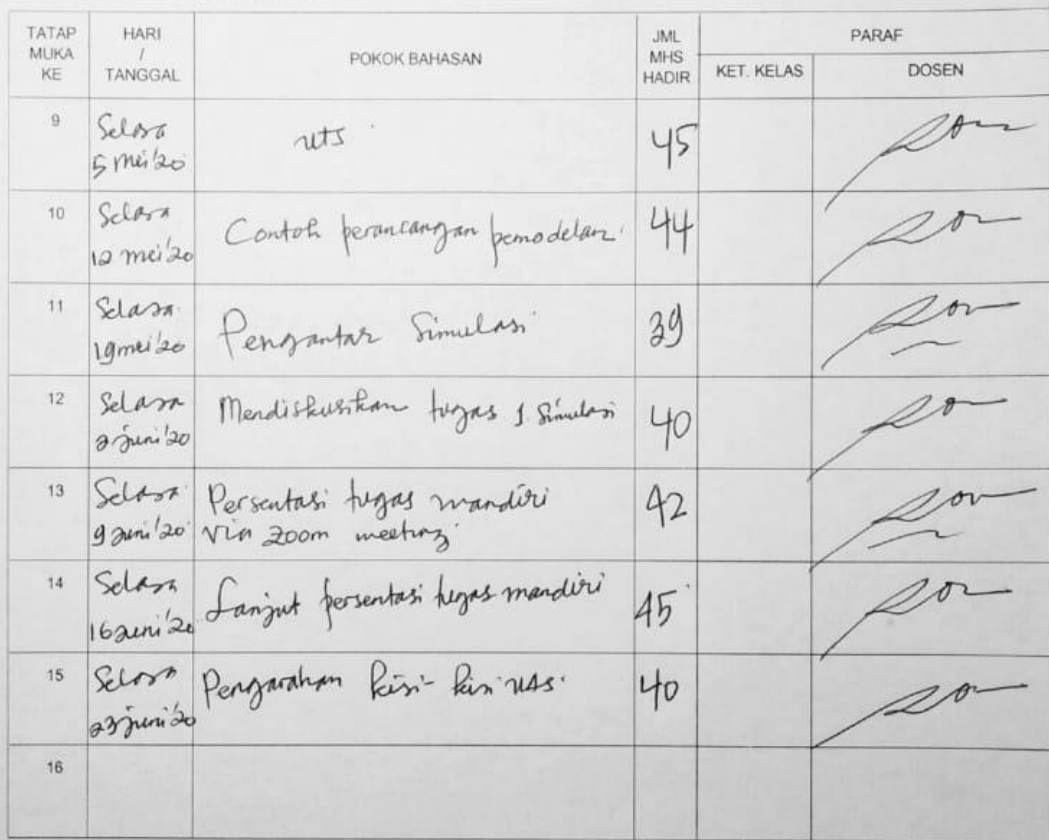 TATAP MUKA KE
HARI / TANGGAL
POKOK BAHASAN
JML MHS HADIR
PARAF
KET. KELAS
DOSEN
9
Selasa
5 Mei '20
UTS
45
10
Selasa
12 mei '20
Contoh perancangan pemodelan
44
11
Selasa
19 mei '20
Pengantar Simulasi
39
12
Selasa
2 juni '20
Mendiskusikan tugas 1. Simulasi
40
13
Selasa
9 juni '20
Persentasi tugas mandiri
via zoom meeting
42
14
Selasa
16 juni '20
Lanjut persentasi tugas mandiri
45
15
Selasa
23 juni '20
Pengarahan kisi-kisi UAS.
40
16